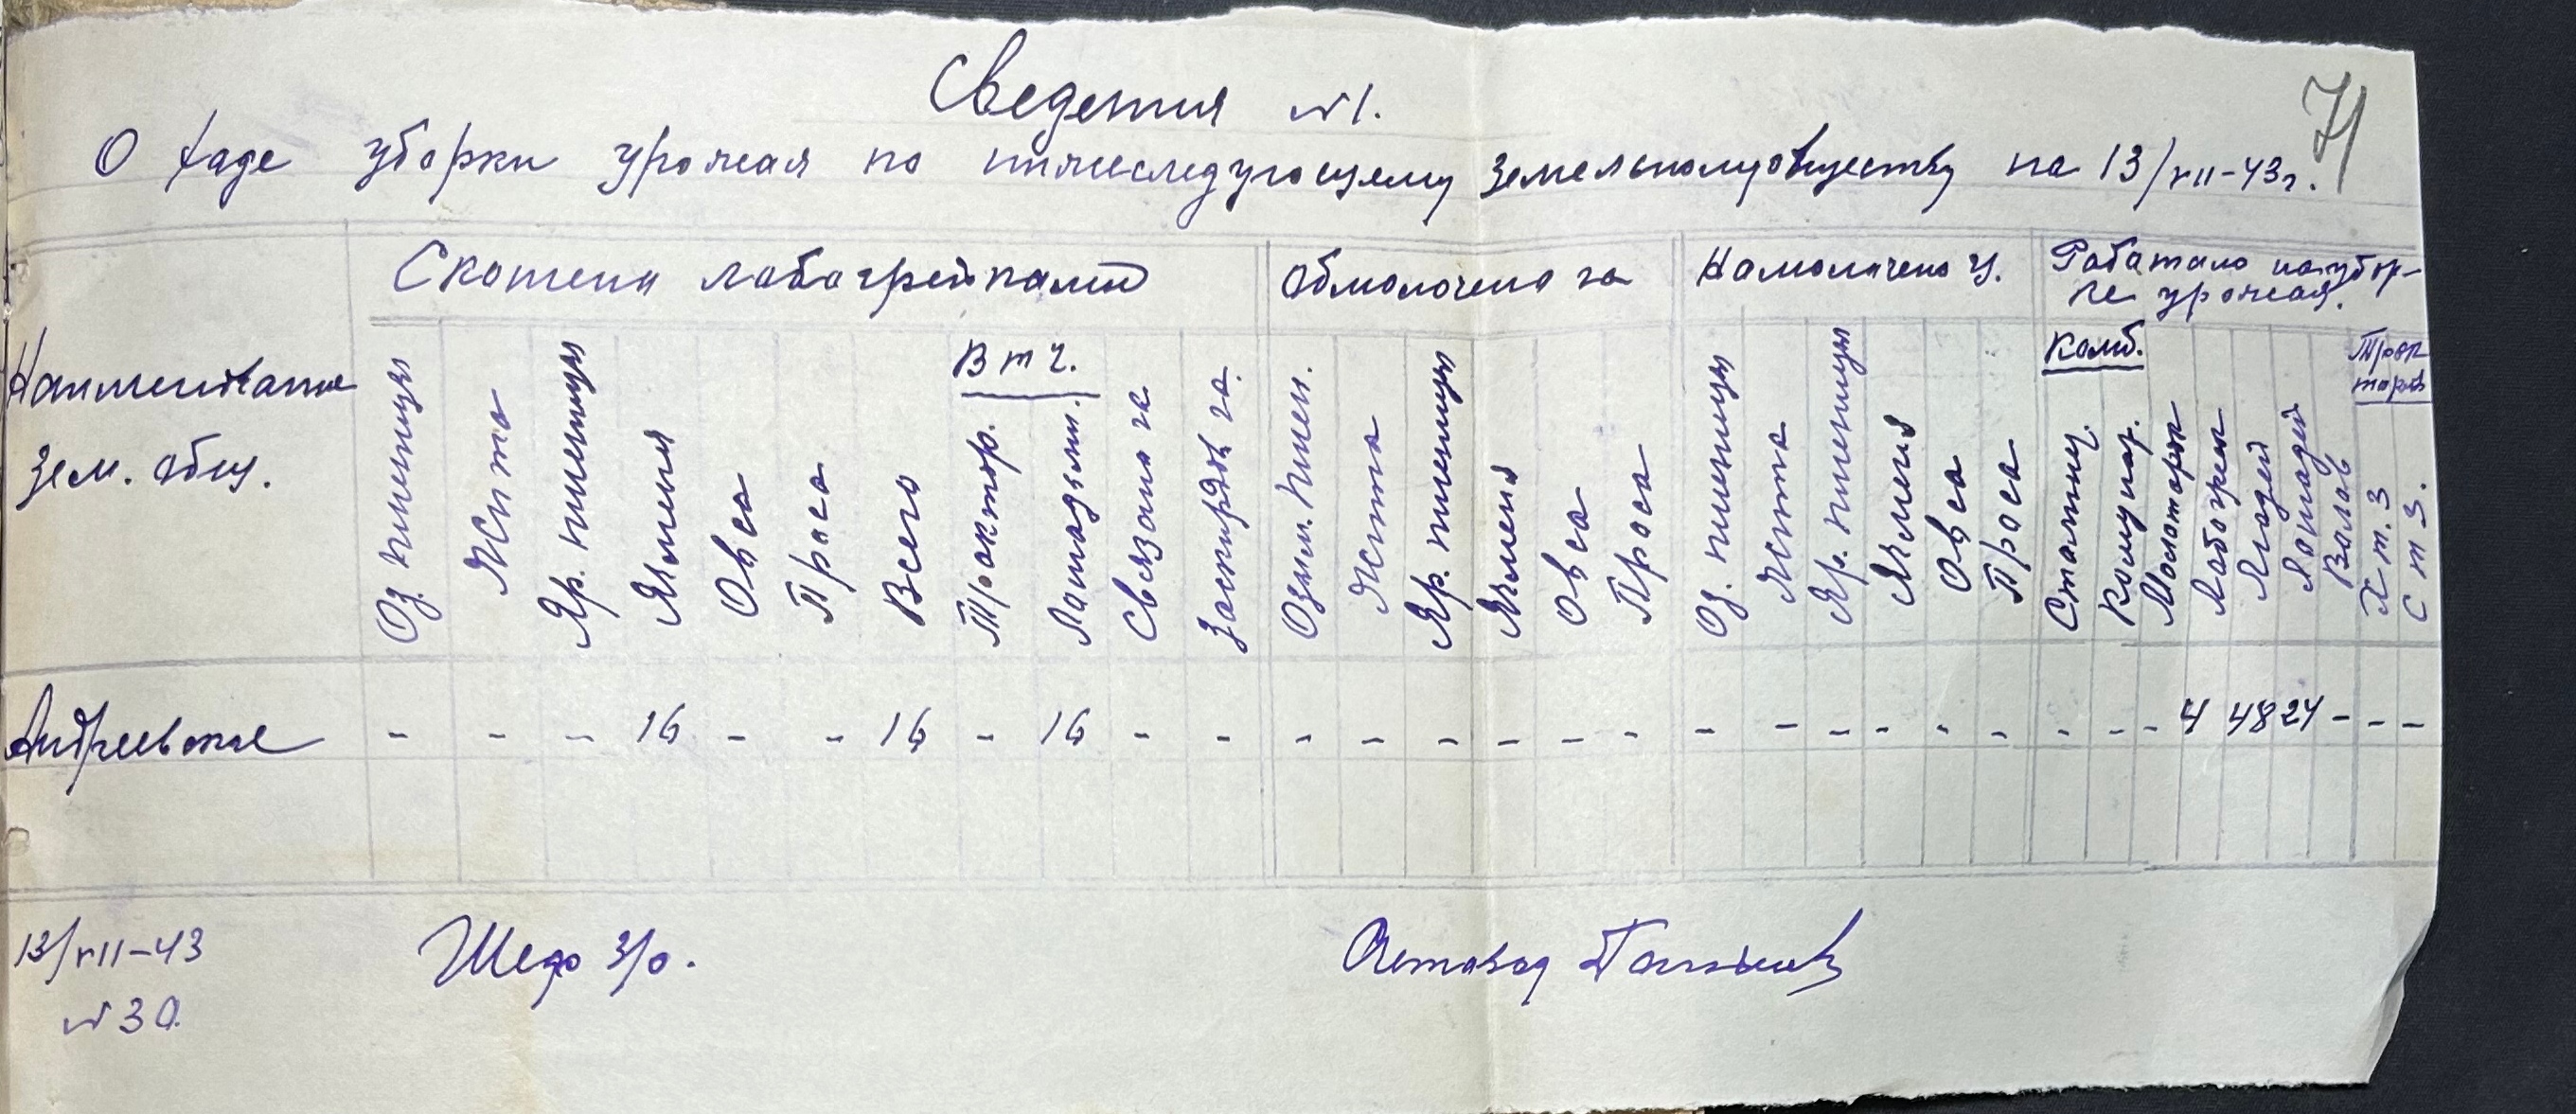 71
Сведения №1.
О ходе уборки урожая по нижеследующему земельному обществу на 13/VII-43г.
Наименование
зем. общ.
Скошено лобогрейками
Обмолочено га
Намолочено ц.
Работало на убор-
ке урожая.
Оз. пшеницы
Жита
Яр. пшеницы
Ячменя
Овса
Проса
Всего
В т ч.
Трактор.
Лошадьми.
Связано га
Заскирдов га.
Озим. пшен.
Жита
Яр. пшеницы
Ячменя
Овса
Проса
Оз. пшеницы
Жита
Яр. пшеницы
Ячменя
Овса
Проса
Комб.
Сталинец.
Комунар.
Лобогреек
Людей
Лошадей
Волов
Трак
торов
Х т. З
С т З.
Андреевское - - - 16 - - 16 - 16 - - - - - - - - - - - - - - - - - 4 48 24 - - -
13/VII-43
№30.
З/о.
Счетовод